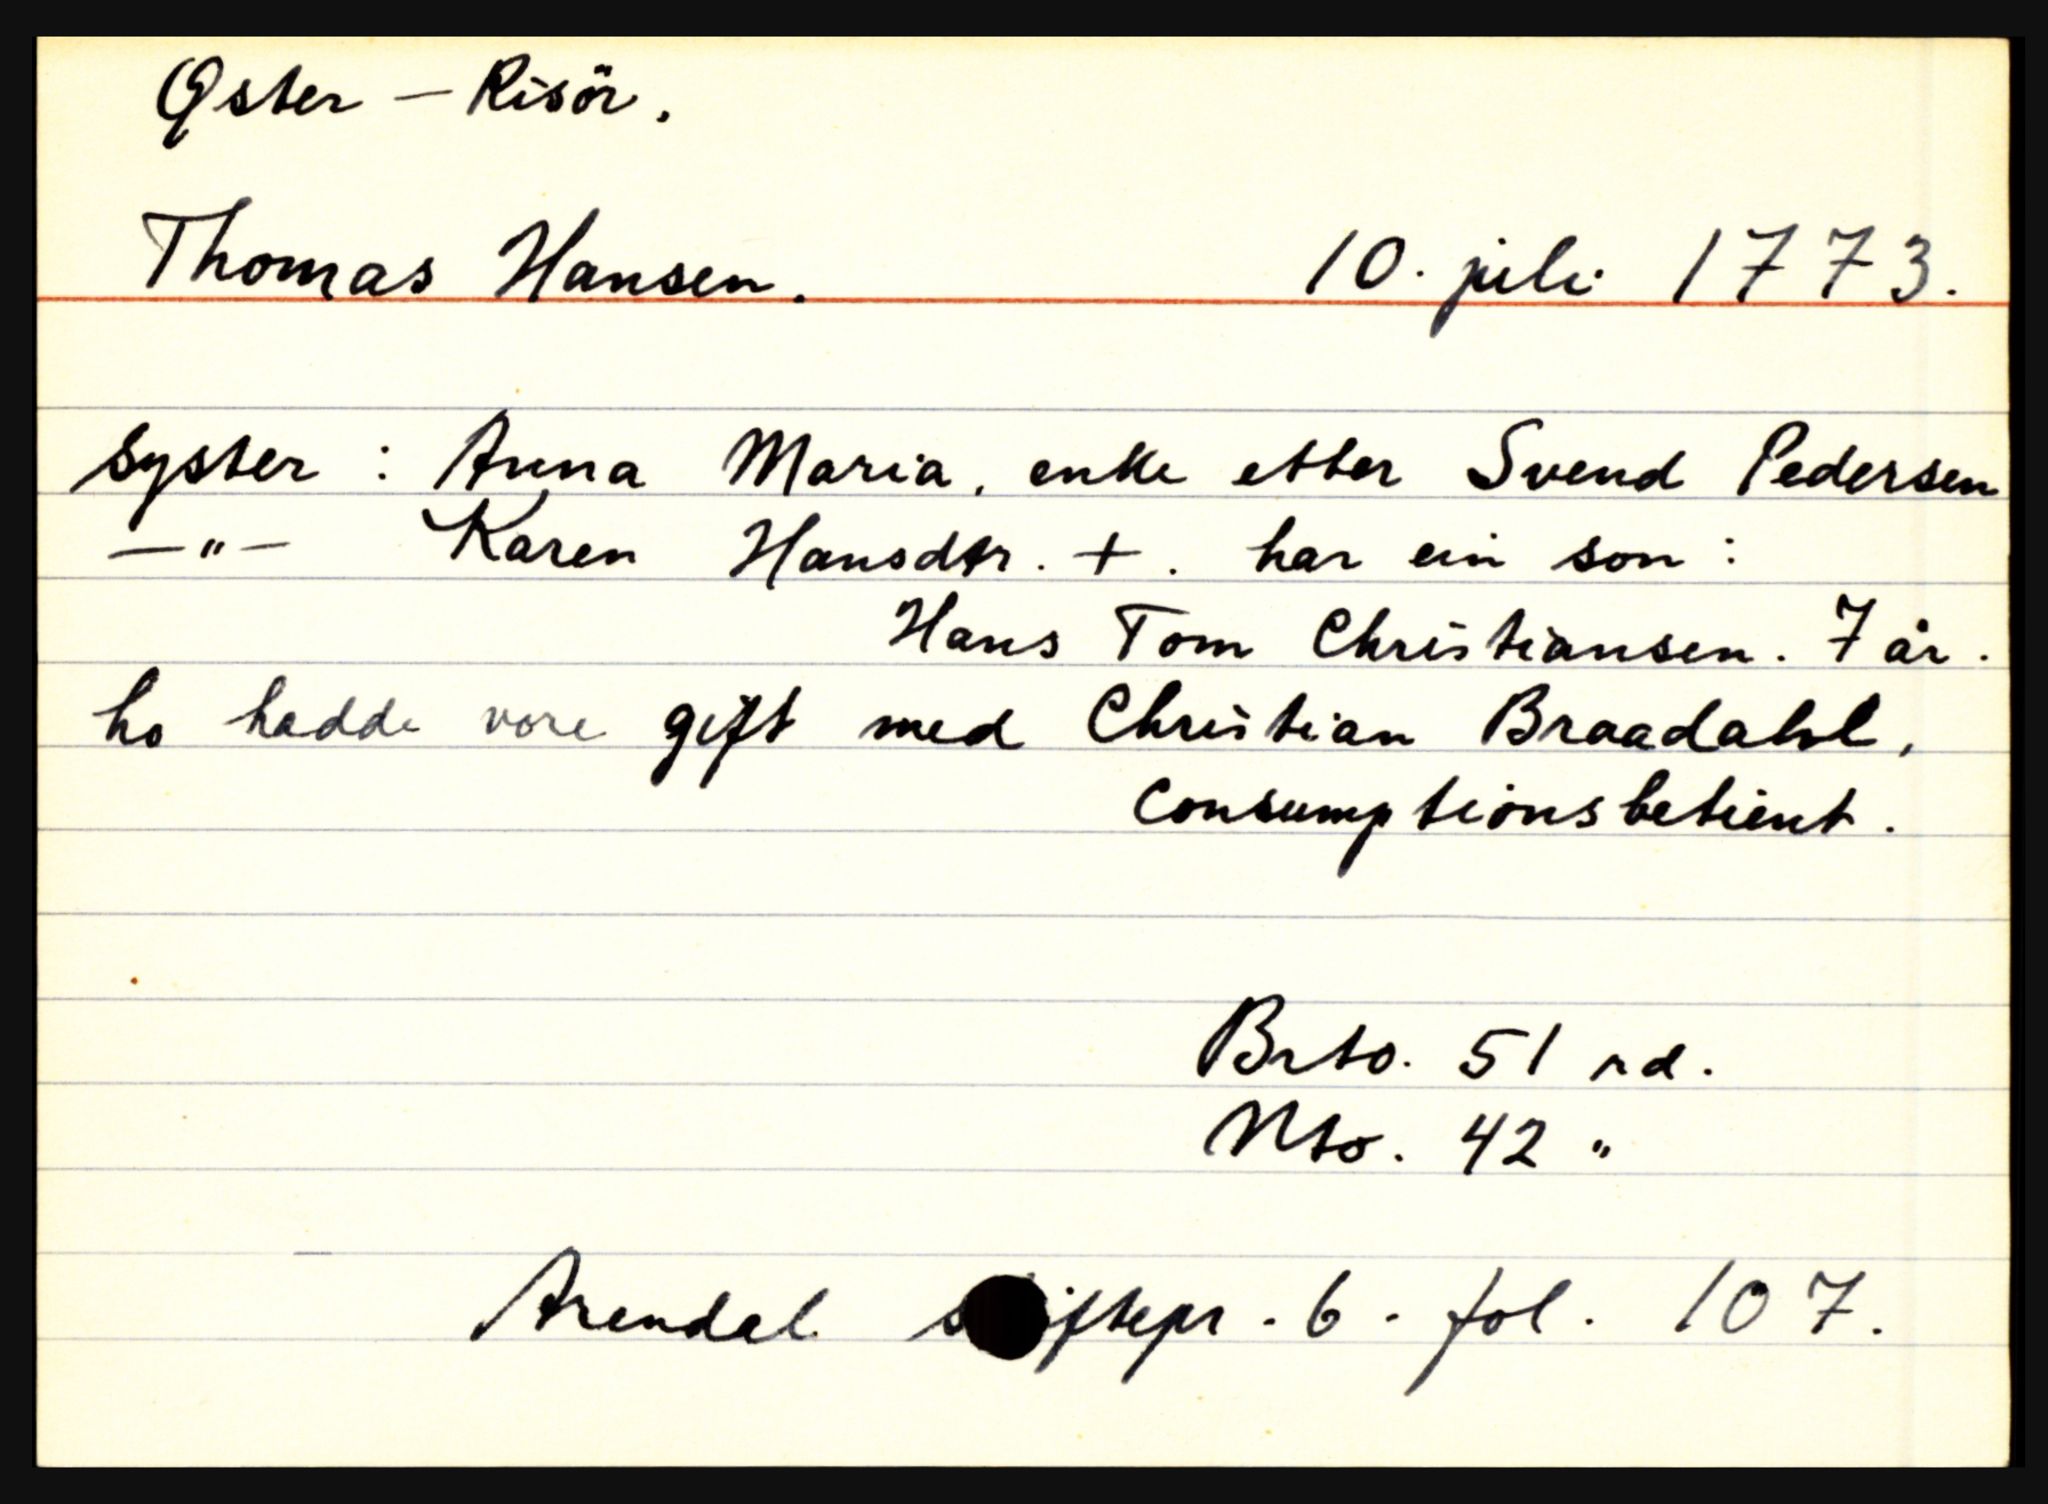 Øster - Risör.
Thomas Hansen. 10. juli 1773.
Syster : Anna Maria, enke etter Svend Pedersen
—"— Karen Hansdtr. +. har ein son :
Hans Tom Christiansen. 7 år.
ho hadde vore gift med Christian Braadahl,
Consumptionsbetient.
Brto. 51 rd.
Nto. 42 "
Arendal skiftepr. 6. fol. 107.